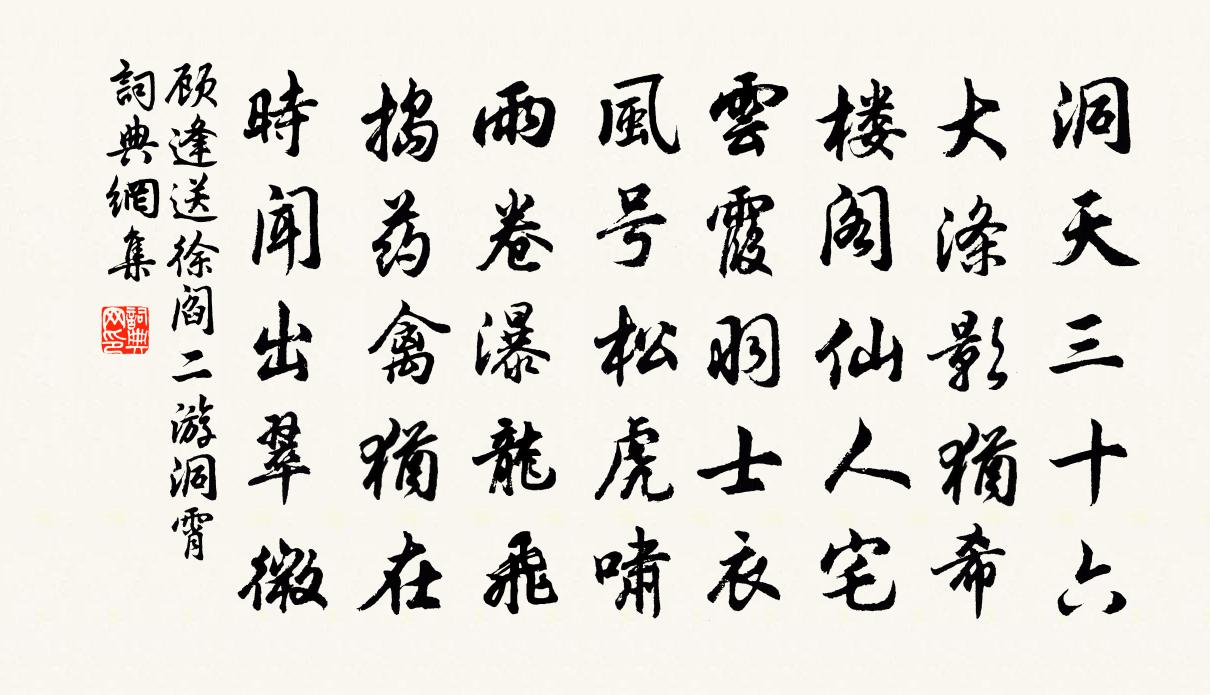 洞天三十六
大涤影猶希
楼阁仙人宅
雲霞羽士衣
風号松虎嘯
雨卷瀑龍飛
搗药禽猶在
時闻出翠微
顾逢送徐阎二游洞霄
詞典網集
詞典网印